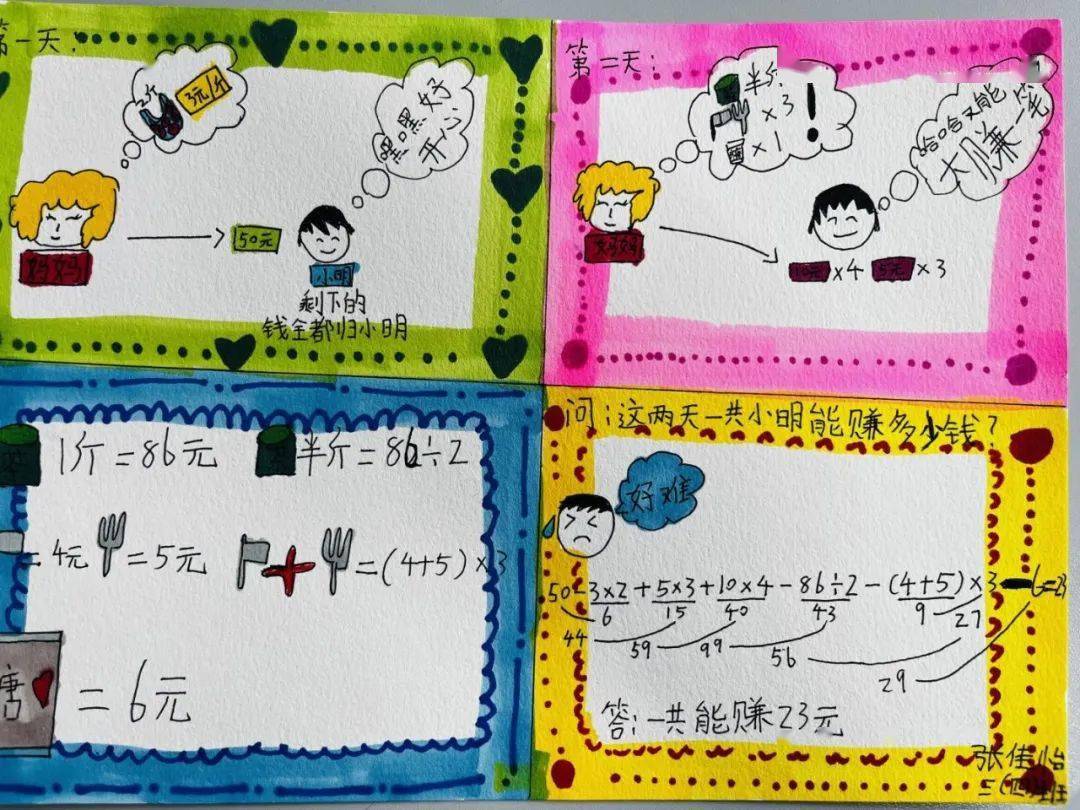 第一天:
3元/斤
嘿嘿好
开心
50元
妈妈
小明
剩下的
钱全都归小明
第二天:
半斤
×3
×1
!
哈哈又能
大赚一笔
妈妈
10元×4 5元×3
1斤=86元
半斤=86÷2
=4元
=5元
=(4+5)×3
=6元
问:这两天一共小明能赚多少钱?
好难
50-3×2+5×3+10×4-86÷2-(4+5)×3-6=23
6 15 40 43 9 27
44 59 99 56 29
答:一共能赚23元
张佳怡